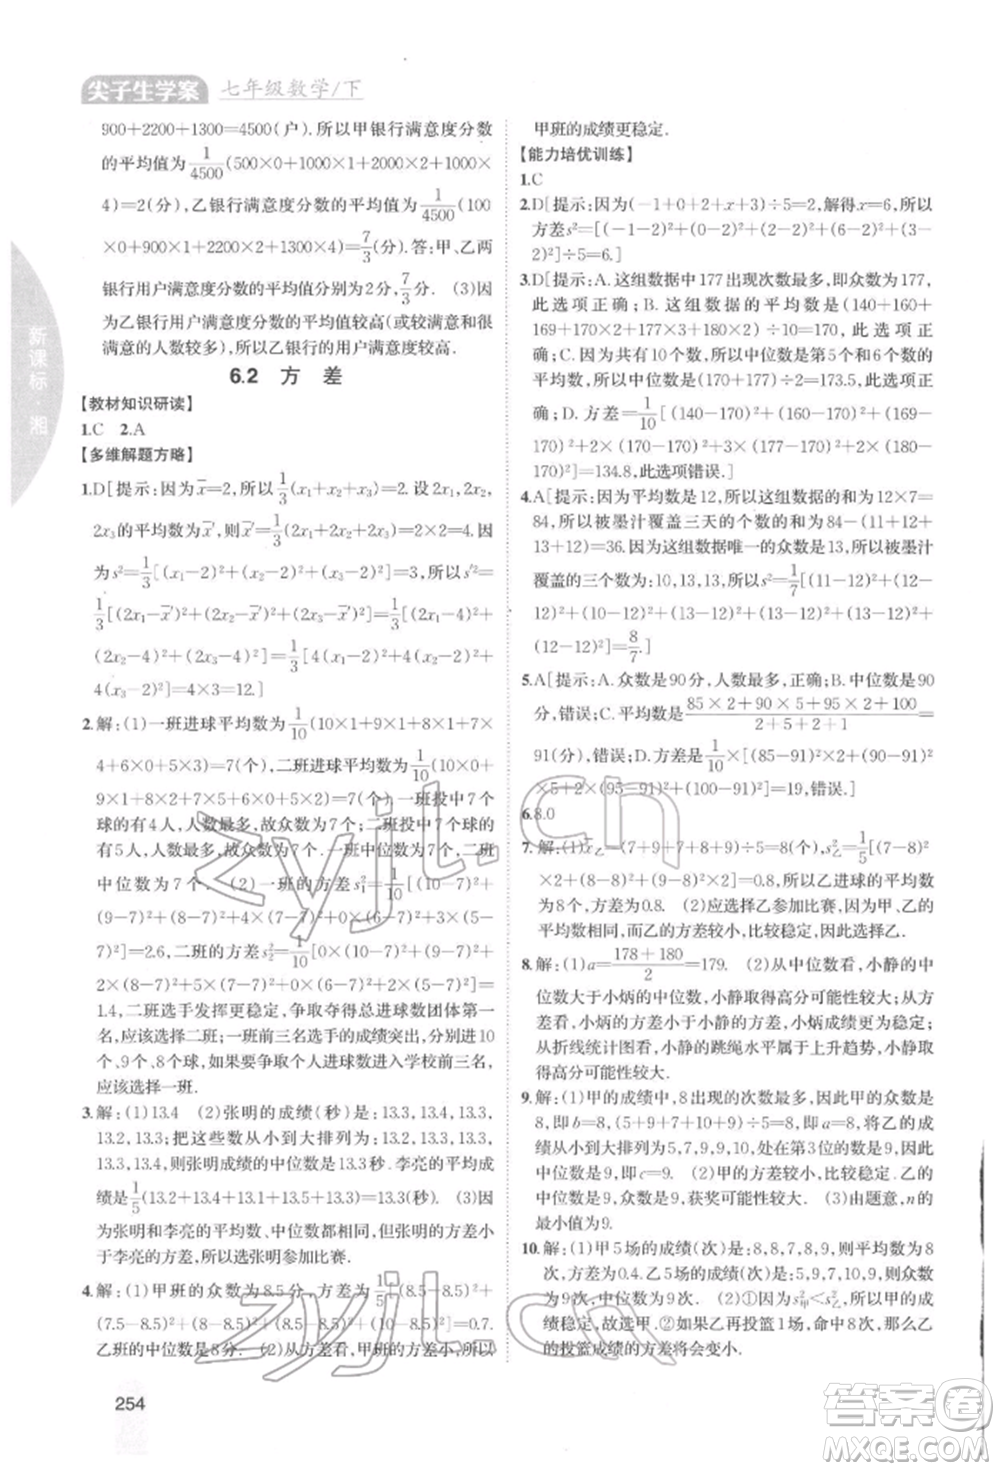 尖子生学案 七年级数学/下
900+2200+1300=4500(户).所以甲银行满意度分数
的平均值为1/4500(500×0+1000×1+1000×2+2000×
4)=2(分),乙银行满意度分数的平均值为1/4500(100
×0+900×1+2200×2+1300×4)=7/3(分).答:甲、乙两
行用户满意度分数的平均值为2分,7/3分. (3)因
为乙银行用户满意度分数的平均值较高(或较
满意的人数较多),所以乙银行的用户满意度较高.
6.2 方 差
【教材知识研读】
1.C 2.A
【多维解题方略】
1.D[提示:因为x̄=2,所以1/3(x₁+x₂+x₃)=2.设2x₁,2x₂,
2x₃的平均数为x̄′,则x̄′=1/3(2x₁+2x₂+2x₃)=2×2=4.
因为s²=1/3[(x₁-2)²+(x₂-2)²+(x₃-2)²]=3,所以s′²=
1/3[(2x₁-x̄′)²+(2x₂-x̄′)²+(2x₃-x̄′)²]=1/3[(2x₁-4)²+
(2x₂-4)²+(2x₃-4)²]=1/3[4(x₁-2)²+4(x₂-2)²+
4(x₃-2)²]=4×3=12.]
2.解:(1)一班进球平均数为1/10(10×1+9×1+8×1+7×
4+6×0+5×3)=7(个),二班进球平均数为1/10(10×0
+9×1+8×2+7×5+6×2+5×0)=7(个).一班投中7个球
的有4人,人数最多,故众数为7(个);二班投中7个球
的有5人,人数最多,故众数为7(个).一班中位数为7个,二班
中位数为7个. (2)一班的方差s₁²=1/10[(10-7)²+
(9-7)²+(8-7)²+4×(7-7)²+0×(6-7)²+3×(5-
7)²]=2.6,二班的方差s₂²=1/10[0×(10-7)²+(9-7)²
+2×(8-7)²+5×(7-7)²+2×(6-7)²+0×(5-7)²]=
1.4,二班选手发挥更稳定,争取夺得总进球数团体第一
名,应该选择二班;一班前三名选手的成绩突出,分别进10
个、9个、8个球,如果要争取个人进球数进入学校前三名,
应该选择一班.
3.解:(1)13.4 (2)张明的成绩(秒)为:13.3,13.4,13.3,
13.2,13.3;把这些数从小到大排列为:13.2,13.3,13.3,
13.3,13.4,则张明成绩的中位数是13.3秒.李亮的平均
成绩是1/5(13.2+13.4+13.1+13.5+13.3)=13.3(秒). (3)因
为张明和李亮的平均数、中位数都相同,但张明的方差小
于李亮的方差,所以选张明参加比赛.
4.解:(1)甲班的众数为8.5分,方差为1/5[(8.5-8.5)²+
(7.5-8.5)²+(8-8.5)²+(8.5-8.5)²+(10-8.5)²]=0.7.
乙班的中位数是8分. (2)从平均数看,甲、乙两班一样;从方差看,甲班的方差小,所以
甲班的成绩更稳定.
【能力培优训练】
1.C
2.D[提示:因为(-1+0+2+x+3)÷5=2,解得x=6,所以
方差s²=[(-1-2)²+(0-2)²+(2-2)²+(6-2)²+(3-
2)²]÷5=6.]
3.D[提示:A.这组数据中177出现次数最多,即众数为177,
此选项正确;B.这组数据的平均数是(140+160+
169+170×2+177×3+180×2)÷10=170,此选项正
确;C.因为共有10个数据,且中位数为第5个和6个数据
的平均数,所以中位数是(170+177)÷2=173.5,此选项正
确;D.方差=1/10[(140-170)²+(160-170)²+(169-
170)²+2×(170-170)²+3×(177-170)²+2×(180-
170)²]=134.8,此选项错误.]
4.A[提示:因为平均数是12,所以这组数据的和为12×7=
84,所以被墨汁覆盖三天的个数的和为84-(11+12+
13+12)=36.因为这组数据唯一的众数是13,所以被墨汁
覆盖的三个数为:10,13,13,所以s²=1/7[(11-12)²+(12-
12)²+(10-12)²+(13-12)²+(13-12)²+(13-12)²+
(12-12)²]=8/7.]
5.A[提示:A.众数是90分,人数最多,正确;B.中位数是90
分,错误;C.平均数是(85×2+90×5+95×2+100)/(2+5+2+1)=
91(分),错误;D.方差是1/10×[(85-91)²×2+(90-91)²
×5+2×(95-91)²+(100-91)²]=19,错误.]
6.8.0
7.解:(1)x̄乙=(7+9+7+8+9)÷5=8(个),s乙²=1/5[(7-8)²
×2+(8-8)²+(9-8)²×2]=0.8,所以乙进球的平均数
为8个,方差为0.8. (2)选择乙参加比赛,因为甲、乙的
平均数相同,而乙的方差较小,较稳定,因此应选择乙.
8.解:(1)a=(178+180)/2=179. (2)从中位数看,小静的中
位数大于小炳的中位数,小静取得高分可能性较大;从
方差看,小炳的方差小于小静的方差,小炳成绩更稳定;
从折线统计图看,小静的跳绳水平属于上升趋势,小静
取得高分可能性较大.
9.解:(1)甲的成绩中,8出现的次数最多,因此甲的众数是
8,即b=8,(5+9+7+10+9)÷5=8,所以a=8,将乙的
成绩从小到大排列为5,7,9,9,10,处在第3位的数是9,
因此中位数是9,即c=9. (2)甲的方差较小,比较稳定,乙
的中位数是9,众数是9,获奖可能性较大. (3)由题意,n的
最小值为9.
10.解:(1)甲5场的成绩(次)是:8,8,7,8,9,则平均数为8
次,方差为0.4.乙5场的成绩(次)是:5,9,7,10,9,则众数
为9次,中位数为9次. (2)①因为s甲²<s乙²,所以
教练选择甲.②如果乙再投篮1场,命中8次,那么乙
的投篮成绩的方差将会变小.
新课标·湘
254
zyjl.cn
zyjl.cn
答案圈
MXQE.COM